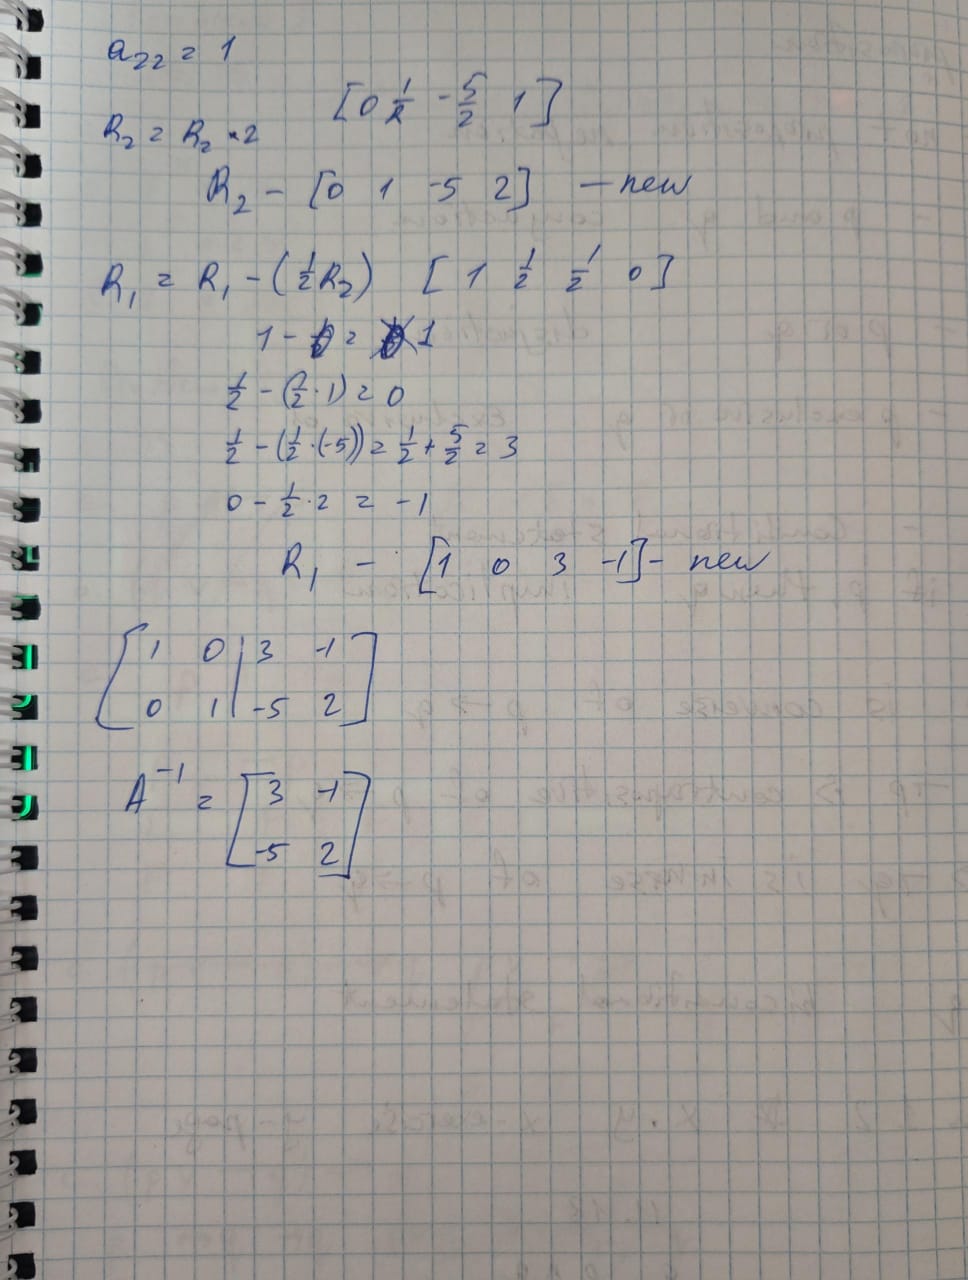 a₂₂ = 1
[0 1/2 -5/2 1]
R₂ = R₂ * 2
R₂ - [0 1 -5 2] - new
R₁ = R₁ - (1/2 R₂) [1 1/2 1/2 0]
1 - 0 = 1
1/2 - (1/2 · 1) = 0
1/2 - (1/2 · (-5)) = 1/2 + 5/2 = 3
0 - 1/2 · 2 = -1
R₁ - [1 0 3 -1] - new
[1 0 | 3 -1
0 1 | -5 2]
A⁻¹ = [3 -1
-5 2]